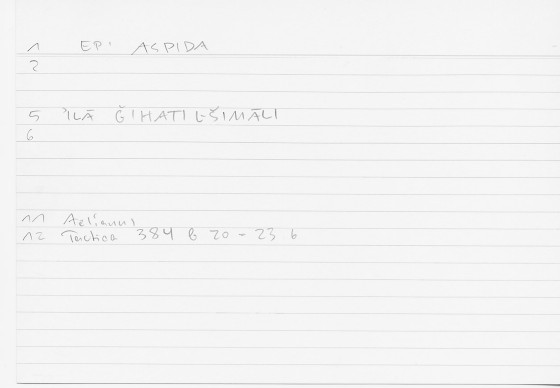 1 EPI ASPIDA
2
5 ʾILĀ ĞIHATI L-ŠIMĀLI
6
11 Aelianus
12 Tactica 384 b 20 - 23 b